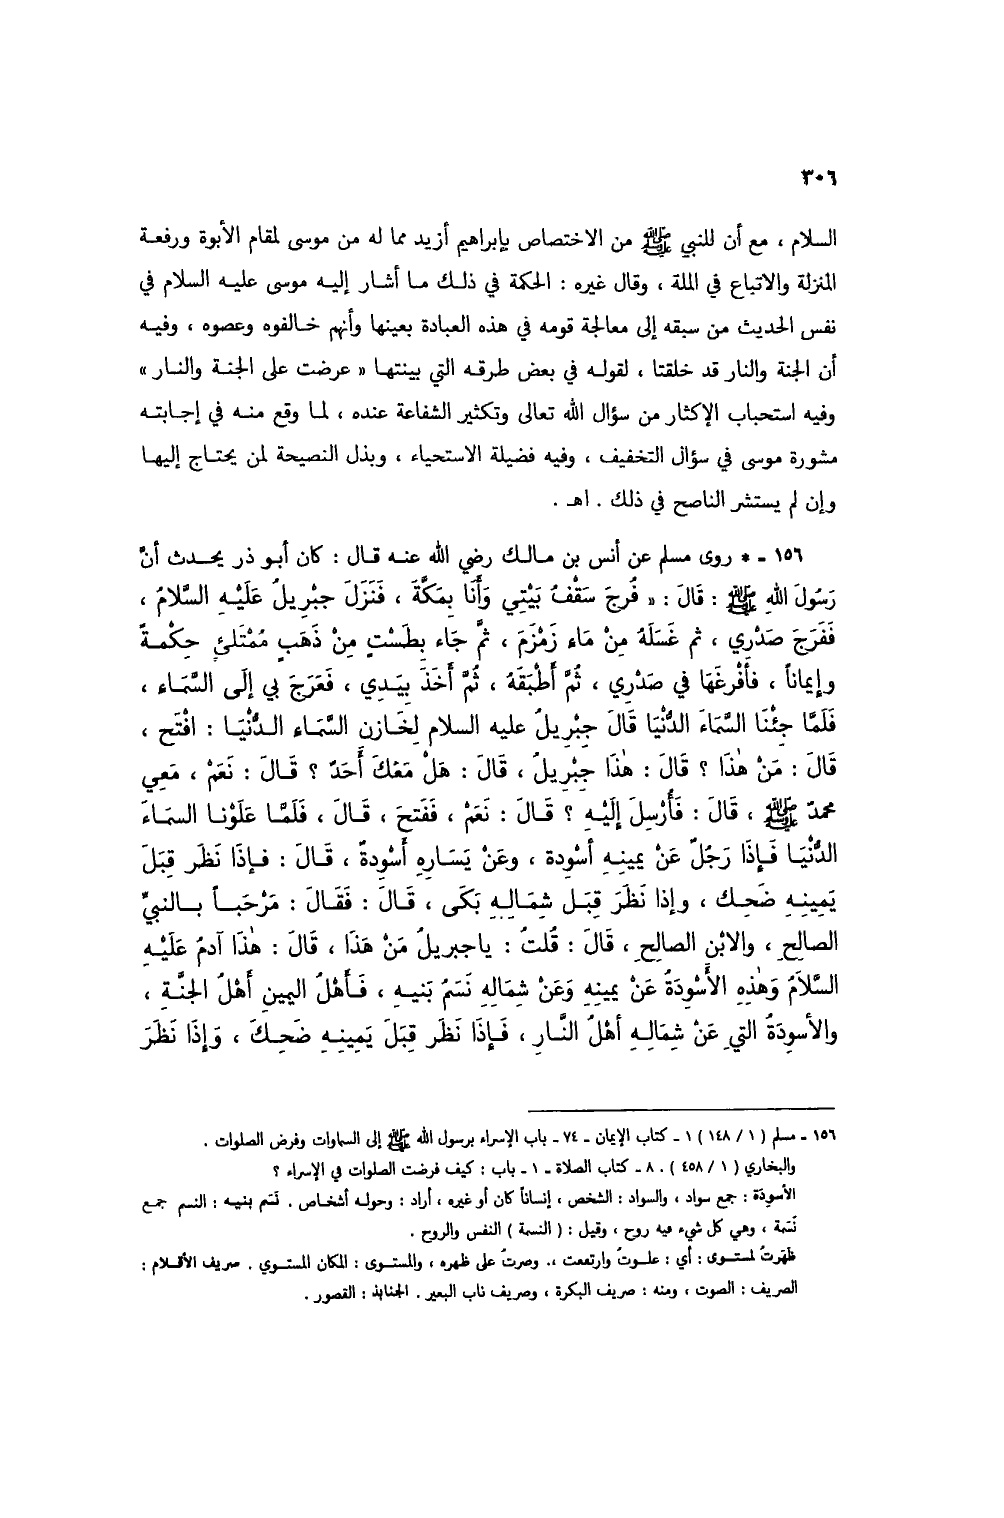 ٣٠٦
السلام ، مع أن للنبي ﷺ من الاختصاص بإبراهيم أزيد مما له من موسى لمقام الأبوة ورفعة
المنزلة والاتباع في الملة ، وقال غيره : الحكمة في ذلك ما أشار إليه موسى عليه السلام في
نفس الحديث من سبقه إلى معالجة قومه في هذه العبادة بعينها وأنهم خالفوه وعصوه ، وفيه
أن الجنة والنار قد خلقتا ، لقوله في بعض طرقه التي بينتها « عرضت علي الجنة والنار »
وفيه استحباب الإكثار من سؤال الله تعالى وتكثير الشفاعة عنده ، لما وقع منه في إجابته
مشورة موسى في سؤال التخفيف ، وفيه فضيلة الاستحياء ، وبذل النصيحة لمن يحتاج إليها
وإن لم يستشر الناصح في ذلك . اهـ .
١٥٦ - * روى مسلم عن أنس بن مالك رضي الله عنه قال : كان أبو ذر يحدث أنَّ
رَسُولَ اللهِ ﷺ : قَالَ : « فُرِجَ سَقْفُ بَيْتِي وَأَنَا بِمَكَّةَ ، فَنَزَلَ جِبْرِيلُ عَلَيْهِ السَّلامُ ،
فَفَرَجَ صَدْرِي ، ثم غَسَلَهُ مِنْ مَاءِ زَمْزَمَ ، ثُمَّ جَاء بِطَسْتٍ مِنْ ذَهَبٍ مُمْتَلئٍ حِكْمةً
وإيماناً ، فأفْرغَهَا في صَدْرِي ، ثُمَّ أَطْبَقَهُ ، ثُمَّ أَخَذَ بِيَدِي ، فَعَرَجَ بي إلَى السَّمَاءِ ،
فَلَمَّا جِئْنَا السَّمَاءَ الدُّنْيَا قَالَ جِبْرِيلُ عليه السلام لِخَازِنِ السَّمَاءِ الدُّنْيَا : افْتَح ،
قَالَ : مَنْ هٰذَا ؟ قَالَ : هٰذَا جِبْرِيلُ ، قَالَ : هَلْ مَعَكَ أَحَدٌ ؟ قَالَ : نَعَمْ ، مَعِي
محمدٌ ﷺ ، قَالَ : فَأُرْسِلَ إِلَيْهِ ؟ قَالَ : نَعَمْ ، فَفَتحَ ، قَالَ ، فَلَمَّا عَلَوْنا السمَاءَ
الدُّنْيَا فَإذَا رَجُلٌ عَنْ يمينِهِ أسْودة ، وعَنْ يَسَارِهِ أَسْودةٌ ، قَالَ : فإذَا نَظَر قِبَلَ
يَمِينِهِ ضَحِك ، وإذا نَظَرَ قِبَل شِمَالِهِ بَكَى ، قَالَ : فَقَالَ : مَرْحَباً بالنبيِّ
الصالحِ ، والابْنِ الصالحِ ، قَالَ : قُلتُ : ياجبريلُ مَنْ هَذَا ، قَالَ : هٰذَا آدمُ عَلَيْهِ
السَّلاَمُ وَهٰذِهِ الأَسْوَدَةُ عَنْ يمينِهِ وَعَنْ شِمَالِهِ نَسَمُ بَنيهِ ، فَأَهْلُ اليمينِ أَهْلُ الجَنَّةِ ،
والأسودَةُ التي عَنْ شِمَالِهِ أهْلُ النَّارِ ، فَإذَا نَظَر قِبَلَ يَمِينِهِ ضَحِكَ ، وَإذَا نَظَرَ
١٥٦ - مسلم ( ١ / ١٤٨ ) ١ - كتاب الإيمان - ٧٤ - باب الإسراء برسول الله ﷺ إلى السماوات وفرض الصلوات .
والبخاري ( ١ / ٤٥٨ ) . ٨ - كتاب الصلاة - ١ - باب : كيف فرضت الصلوات في الإسراء ؟
الأسوِدَة : جمع سواد ، والسواد : الشخص ، إنساناً كان أو غيره ، أراد : وحوله أشخاص . نَسَم بنيه : النسم جمع
نَسَمة ، وهي كل شيء فيه روح ، وقيل : ( النسمة ) النفس والروح .
ظهَرتُ لمستوى : أي : علوتُ وارتفعت ،. وصرتُ على ظهره ، والمستوى : المكان المستوي . صريف الأقلام :
الصريف : الصوت ، ومنه : صريف البكرة ، وصريف ناب البعير . الجنابذ : القصور .